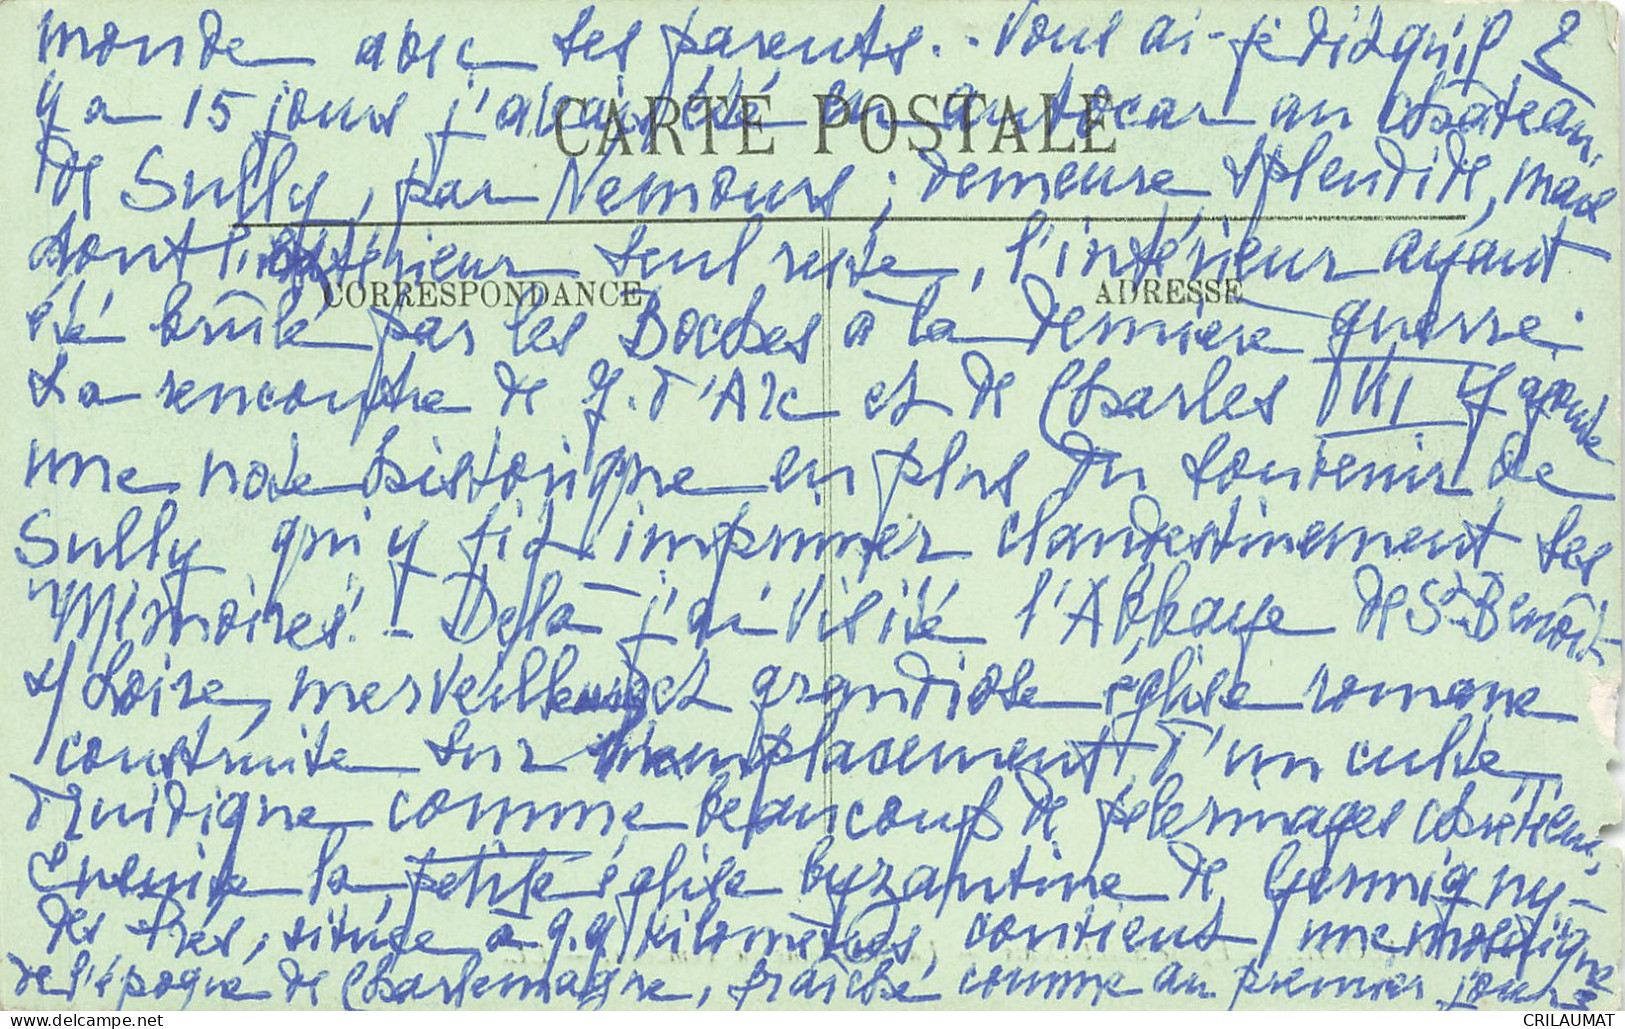 monde avec ses parents. - Vous ai-je dit qu'il
y a 15 jours j'avais été en autocar au château
CARTE POSTALE
de Sully, par Nemours ; demeure splendide, mais
dont l'extérieur seul reste, l'intérieur ayant
CORRESPONDANCE
ADRESSE
été brûlé par les Boches à la dernière guerre.
La rencontre de J. d'Arc et de Charles VII y ajoute
une note historique en plus du souvenir de
Sully qui y fit imprimer clandestinement ses
Mémoires. - De là j'ai visité l'Abbaye de St Benoît
s/ Loire, merveilleuse et grandiose église romane
construite sur l'emplacement d'un culte
druidique comme beaucoup de pélerinages chrétiens,
Ensuite la petite église byzantine de Germigny-
des Prés, située à q.q kilomètres, contient une mosaïque
de l'époque de Charlemagne, fraîche comme au premier jour
CRILAUMAT